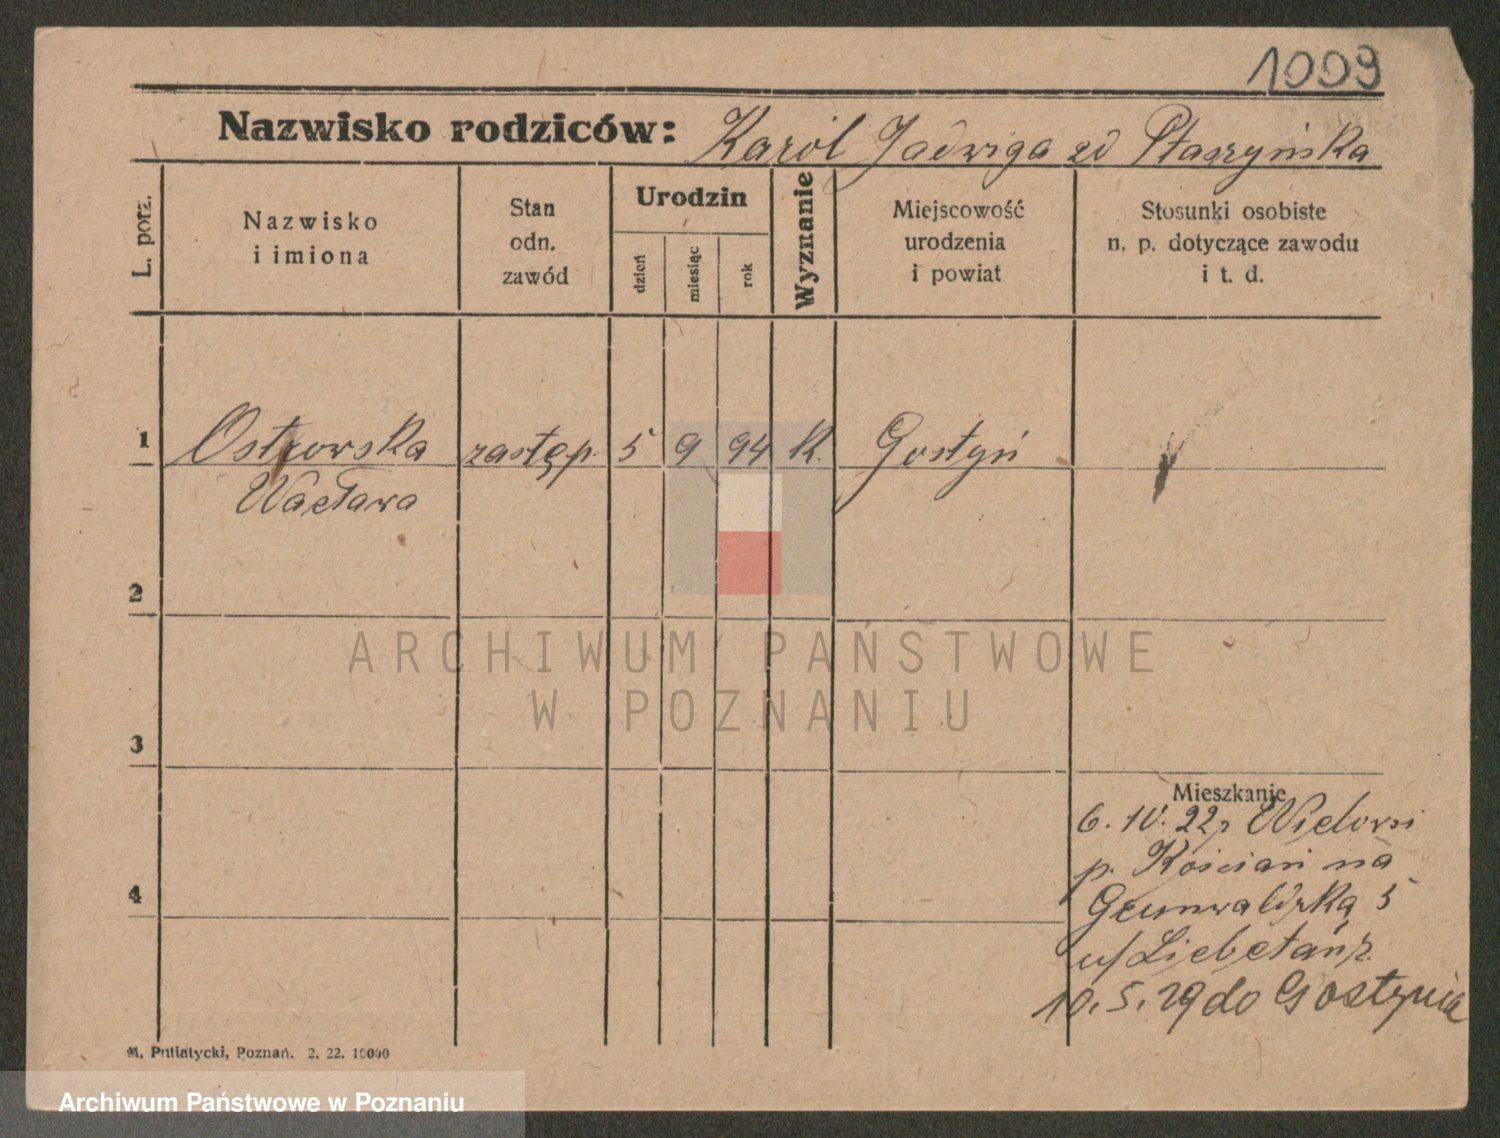 1009
Nazwisko rodziców: Karol Jadwiga zd Ptaszyńska
L. porz.
Nazwisko
i imiona
Stan
odn.
zawód
Urodzin
dzień
miesiąc
rok
Wyznanie
Miejscowość
urodzenia
i powiat
Stosunki osobiste
n. p. dotyczące zawodu
i t. d.
1 Ostrowska zastęp. 5 9 94 K. Gostyń
Wacława
2
3
4
Mieszkanie
6. IV. 22 z
p. Kościan na
Grunwaldzką 5
u/
10. 5. 29 do Gostynia
M. Putiatycki, Poznań. 2. 22. 10000
ARCHIWUM PAŃSTWOWE
W POZNANIU
Archiwum Państwowe w Poznaniu